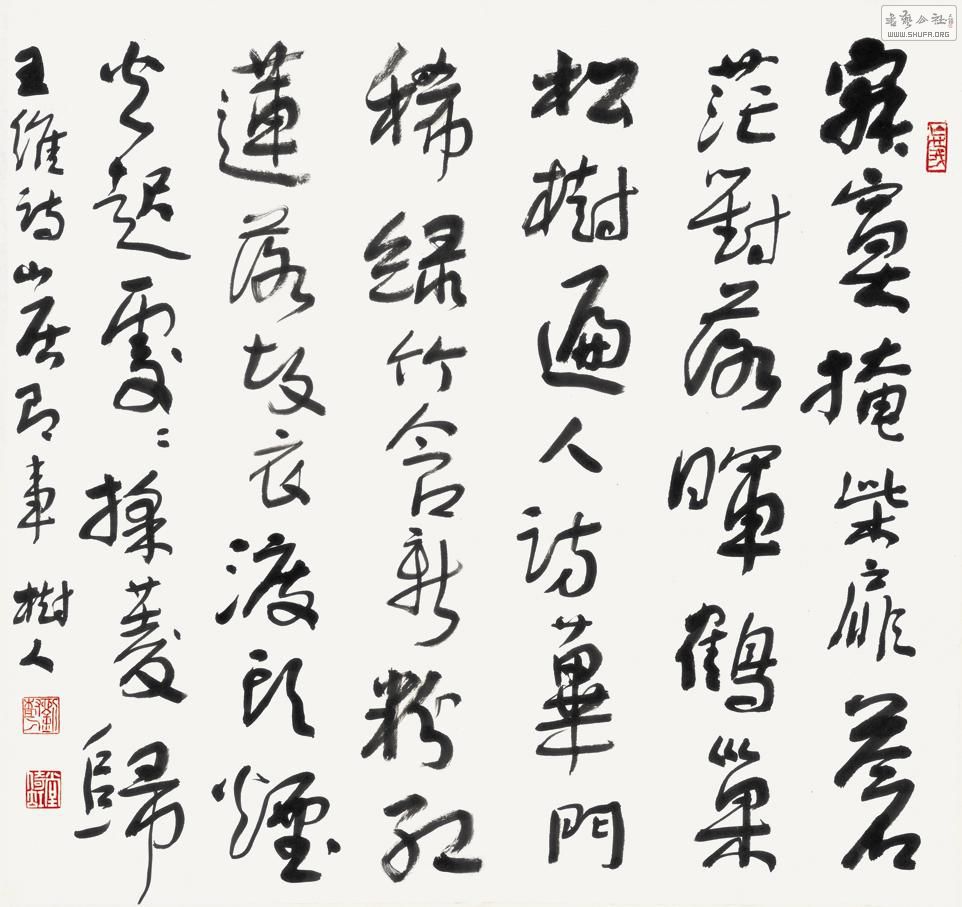 書藝公社
WWW.SHUFA.ORG
寂寞掩柴扉蒼
茫對落暉鶴巢
松樹遍人訪蓽門
稀綠竹含新粉紅
蓮落故衣渡頭煙
火起處〻採菱歸
王維詩山居即事 樹人